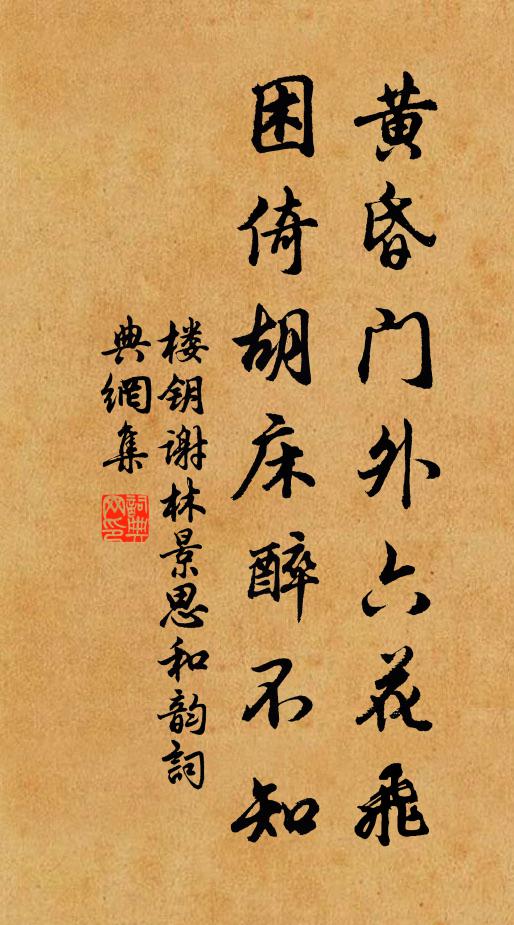 黄昏门外六花飛
困倚胡床醉不知
楼钥谢林景思和韵詞
典網集
詞典網印